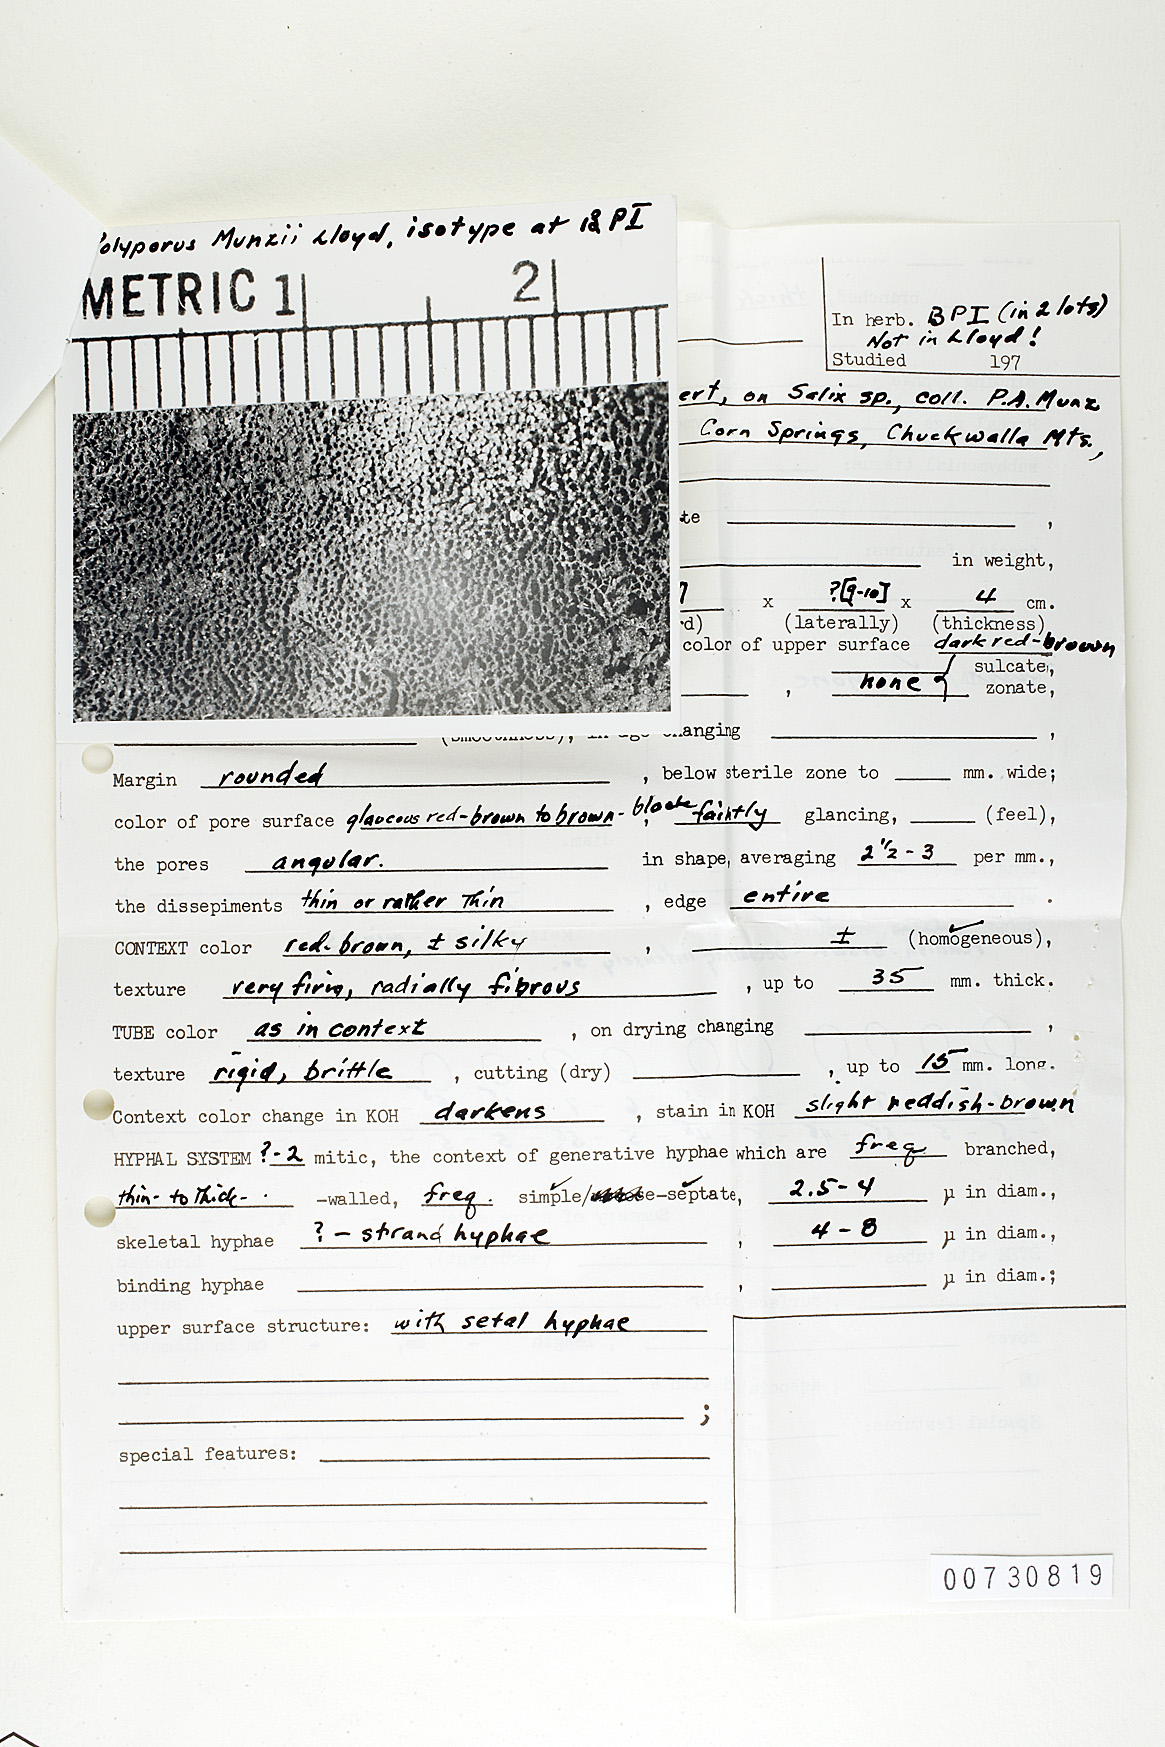 Polyporus Munzii Lloyd, isotype at BPI
METRIC 1 2
In herb. BPI (in 2 lots)
Not in Lloyd!
Studied 197
ert, on Salix sp., coll. P.A. Munz
Corn Springs, Chuckwalla Mts.,
te ,
in weight,
7 x ?[9-10] x 4 cm.
rd) (laterally) (thickness)
color of upper surface dark red-brown
sulcate,
, none zonate,
(smoothness), in age changing ,
Margin rounded , below sterile zone to mm. wide;
color of pore surface glaucous red-brown to brown-black, faintly glancing, (feel),
the pores angular. in shape, averaging 2 1/2 - 3 per mm.,
the dissepiments thin or rather thin , edge entire .
CONTEXT color red-brown, ± silky , ± (homogeneous),
texture very firm, radially fibrous , up to 35 mm. thick.
TUBE color as in context , on drying changing ,
texture rigid, brittle , cutting (dry) , up to 15 mm. long.
Context color change in KOH darkens , stain in KOH slight reddish-brown
HYPHAL SYSTEM ?-2 mitic, the context of generative hyphae which are freq branched,
thin- to thick- -walled, freq. simple/ -septate, 2.5-4 µ in diam.,
skeletal hyphae ? - strand hyphae , 4-8 µ in diam.,
binding hyphae , µ in diam.;
upper surface structure: with setal hyphae
;
special features:
00730819